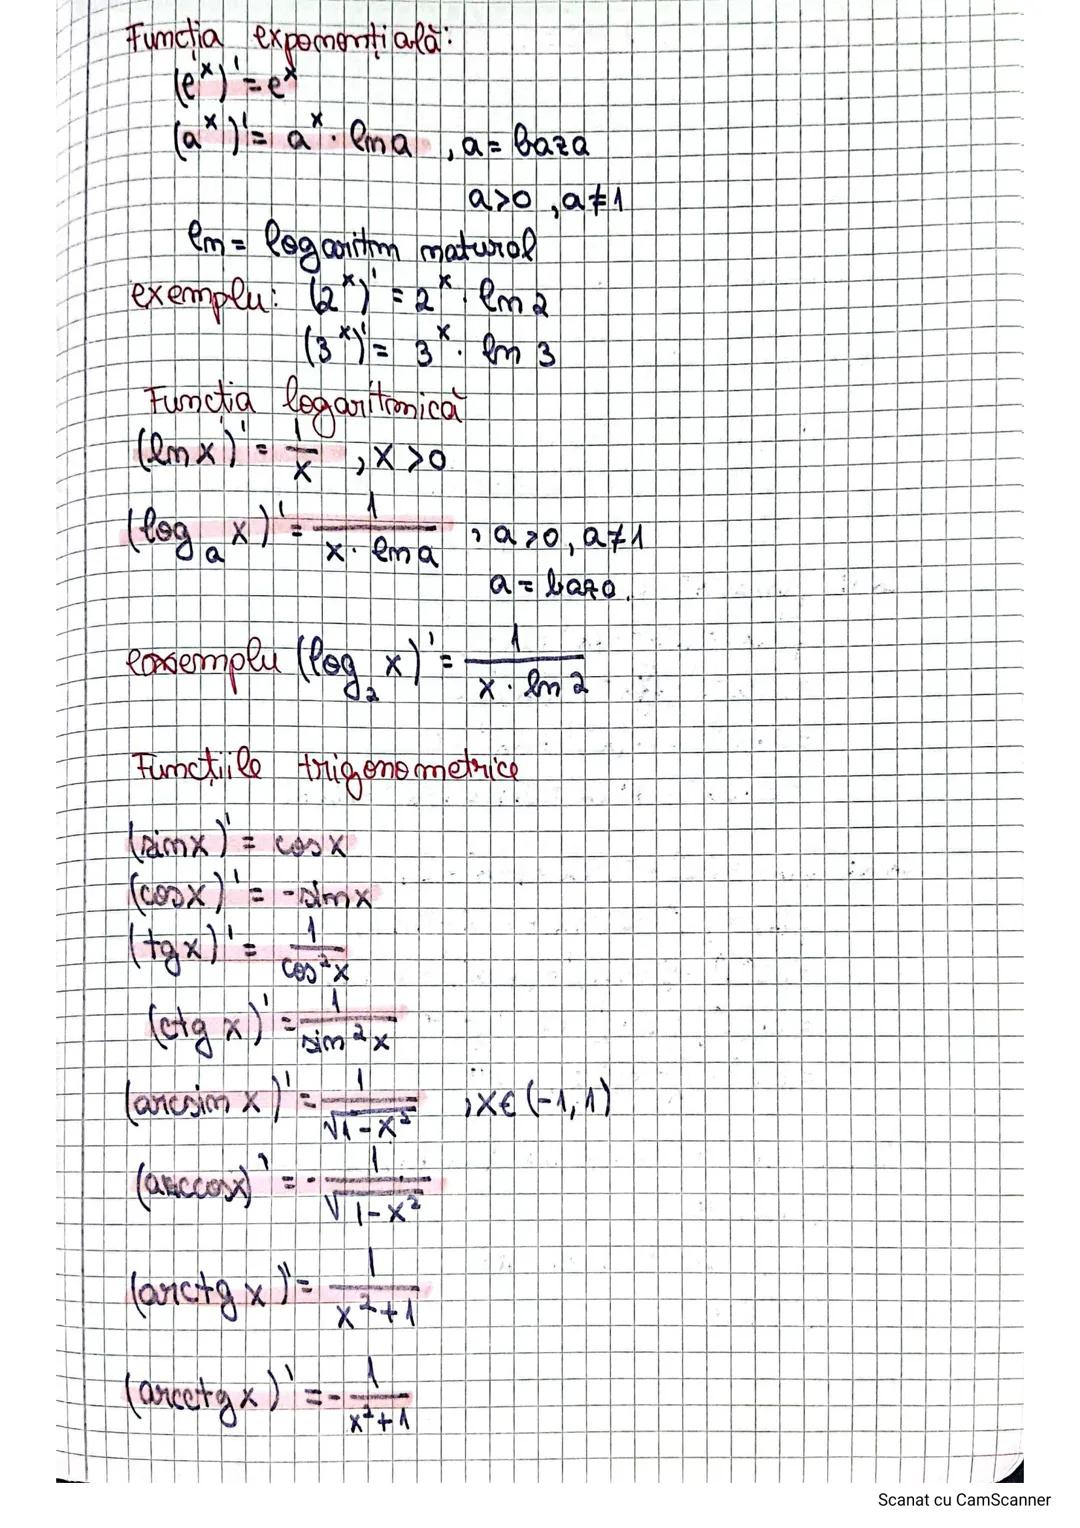 Funcția exponențială:
(eˣ)' = eˣ
(aˣ)' = aˣ · ln a , a = baza
a>0 , a≠1
ln = logaritm natural
exemplu: (2ˣ)' = 2ˣ · ln 2
(3ˣ)' = 3ˣ · ln 3
Funcția logaritmică
(ln x)' = 1/x , x>0
(logₐ x)' = 1/(x · ln a) , a>0, a≠1
a = baza.
exemplu (log₂ x)' = 1/(x · ln 2)
Funcțiile trigonometrice
(sin x)' = cos x
(cos x)' = -sin x
(tg x)' = 1/cos²x
(ctg x)' = 1/sin²x
(arcsin x)' = 1/√(1-x²) , x∈(-1,1)
(arccos x)' = - 1/√(1-x²)
(arctg x)' = 1/(x²+1)
(arcctg x)' = - 1/(x²+1)
Scanat cu CamScanner